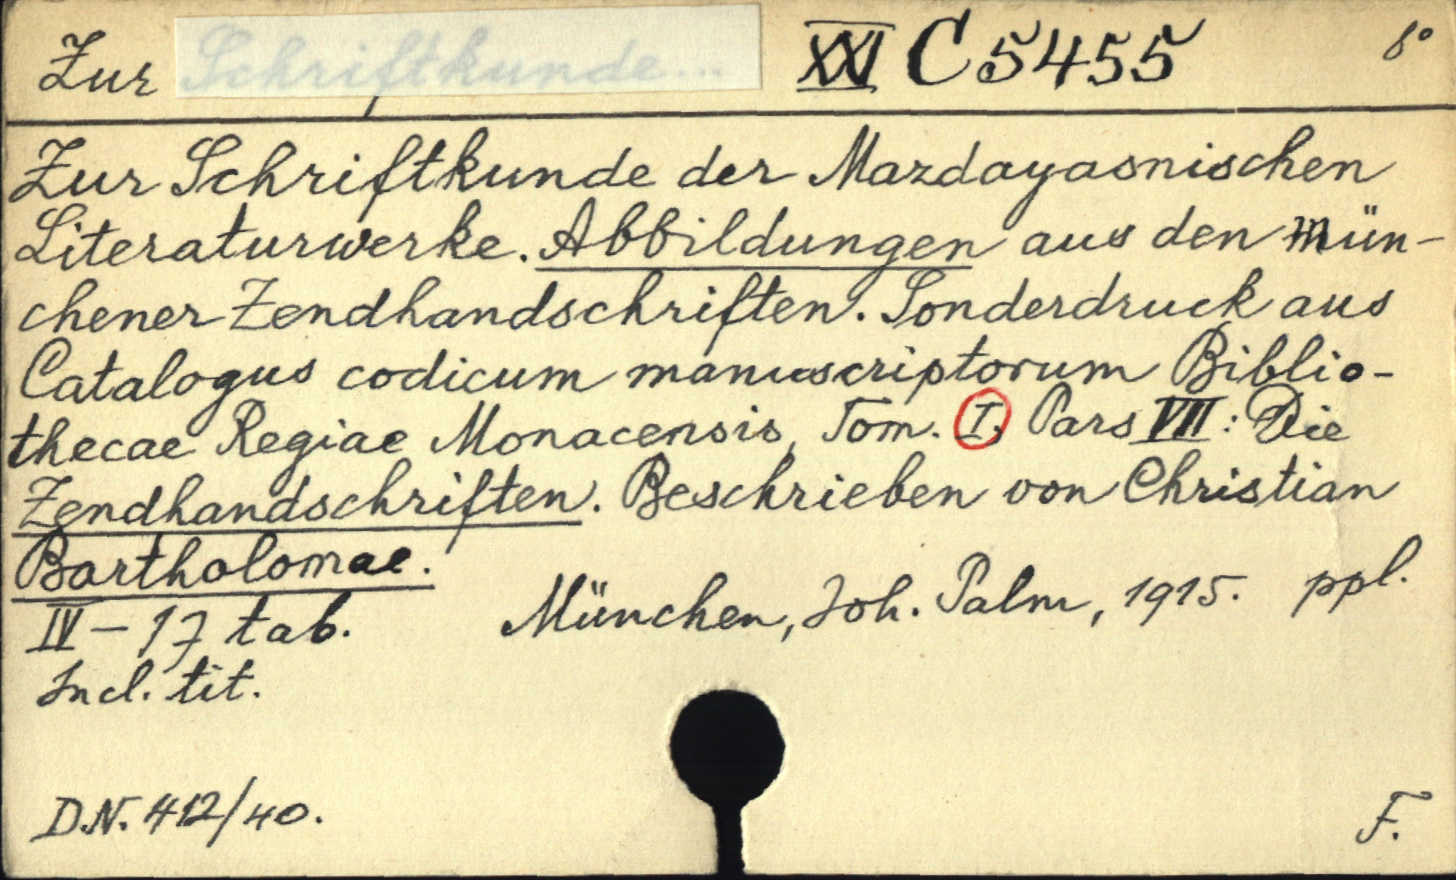 Zur Schriftkunde... XXI C 5455 8°
Zur Schriftkunde der Mazdayasnischen
Literaturwerke. Abbildungen aus den Mün-
chener Zendhandschriften. Sonderdruck aus
Catalogus codicum manuscriptorum Biblio-
thecae Regiae Monacensis, Tom. I, Pars VII: Die
Zendhandschriften. Beschrieben von Christian
Bartholomae.
München, Joh. Palm, 1915. ppl.
IV - 17 tab.
Incl. tit.
D.N. 412/40.
F.